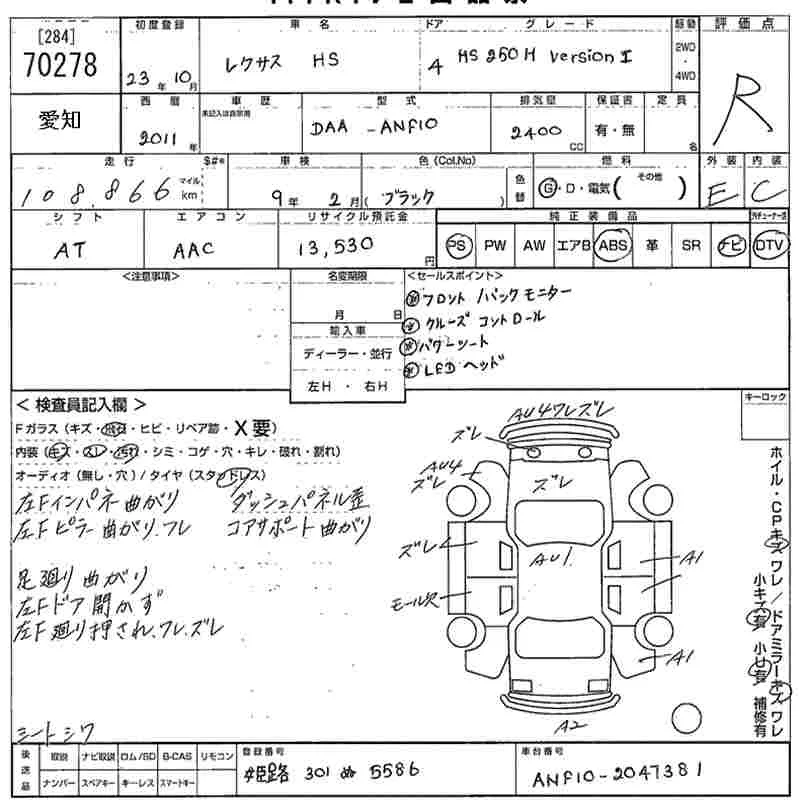 [284]
70278
愛知
初度登録
23年10月
西暦
2011年
車名
レクサス HS
ドア
4
グレード
HS250H version I
駆動
2WD
・
4WD
評価点
R
車歴
未記入は自家用
型式
DAA-ANF10
排気量
2400CC
保証書
有・無
定員
名
走行
$#*
108,866
マイル
km
車検
9年2月
色(Col.No)
(ブラック)
色替
燃料
G・D・電気(その他)
外装
E
内装
C
シフト
AT
エアコン
AAC
リサイクル預託金
13,530円
純正装備品
PS PW AW エアB ABS 革 SR ナビ DTV
<注意事項>
名変期限
月 日
輸入車
ディーラー・並行
左H・右H
<セールスポイント>
※フロント/バックモニター
※クルーズコントロール
※パワーシート
※LEDヘッド
キーロック
<検査員記入欄>
Fガラス(キズ・飛石・ヒビ・リペア跡・X要)
内装(キズ・スレ・汚れ・シミ・コゲ・穴・キレ・破れ・割れ)
オーディオ(無し・穴)/タイヤ(スタッドレス)
左Fインパネ曲がり ダッシュパネル歪
左Fピラー曲がり.ワレ コアサポート曲がり
足廻り曲がり
左Fドア開かず
左F廻り押され.ワレ.ズレ
シートシワ
AU4ワレズレ
ズレ
AU4
ズレ
ズレ
ズレ
AU1
A1
モール欠
A1
A2
ホイル・CPキズワレ/ドアミラーキズワレ
小キズ有 小U有 補修有
後送品
取説 ナビ取説 ロム/SD B-CAS リモコン
ナンバー スペアキー キーレス スマートキー
登録番号
姫路 301 ぬ 5586
車台番号
ANF10-2047381